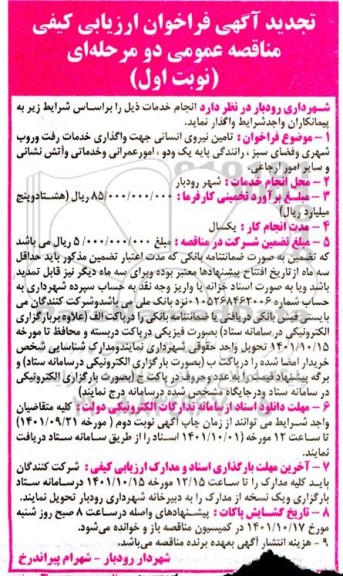 تجدید آگهی فراخوان ارزیابی کیفی
مناقصه عمومی دو مرحله‌ای
(نوبت اول)
شهرداری رودبار در نظر دارد انجام خدمات ذیل را براساس شرایط زیر به
پیمانکاران واجدشرایط واگذار نماید.
۱ - موضوع فراخوان : تامین نیروی انسانی جهت واگذاری خدمات رفت وروب
شهری وفضای سبز ، رانندگی پایه یک ودو ، امورعمرانی وخدماتی وآتش نشانی
و سایر امور ارجاعی
۲ - محل انجام خدمات : شهر رودبار
۳ - مبلغ برآورد تخمینی کارفرما : ۸۵/۰۰۰/۰۰۰/۰۰۰ ریال (هشتادوپنج
میلیارد ریال)
۴ - مدت انجام کار : یکسال
۵ - مبلغ تضمین شرکت در مناقصه : مبلغ ۵/۰۰۰/۰۰۰/۰۰۰ ریال می باشد
که تضمین به صورت ضمانتنامه بانکی که مدت اعتبار تضمین مذکور باید حداقل
سه ماه از تاریخ افتتاح پیشنهادها معتبر بوده وبرای سه ماه دیگر نیز قابل تمدید
باشد ویا به صورت اسناد خزانه یا واریز وجه نقد به حساب سپرده شهرداری به
حساب شماره ۰۱۰۵۲۶۸۴۶۲۰۰۶ نزد بانک ملی می باشدوشرکت کنندگان می
بایستی فیش بانکی دریافتی یا ضمانتنامه بانکی را درپاکت الف (علاوه بربارگزاری
الکترونیکی درسامانه ستاد) بصورت فیزیکی درپاکت دربسته و محافظ تا مورخه
۱۴۰۱/۱۰/۱۵ تحویل واحد حقوقی شهرداری نمایندومدارک شناسایی شخص
خریدار امضا شده را درپاکت ب (بصورت بارگزاری الکترونیکی درسامانه ستاد) و
برگه پیشنهاد قیمت را به عدد وحروف در پاکت ج (بصورت بارگزاری الکترونیکی
در سامانه ستاد ودرجایگاه مشخص شده درسامانه درج نمایند)
۶ - مهلت دانلود اسناد از سامانه تدارکات الکترونیکی دولت : کلیه متقاضیان
واجد شرایط می توانند از زمان چاپ آگهی نوبت دوم ( مورخه ۱۴۰۱/۰۹/۲۱)
تا ساعت ۱۲ مورخه (۱۴۰۱/۱۰/۰۱) اسناد را از طریق سامانه ستاد دریافت
نمایند.
۷ - آخرین مهلت بارگذاری اسناد و مدارک ارزیابی کیفی : شرکت کنندگان
باید کلیه مدارک را تا ساعت ۱۲/۱۵ مورخه ۱۴۰۱/۱۰/۱۵ درسامانه ستاد
بارگزاری ویک نسخه از مدارک را به دبیرخانه شهرداری رودبار تحویل نمایند.
۸ - تاریخ گشایش پاکات : پیشنهادهای واصله درساعت ۸ صبح روز شنبه
مورخ ۱۴۰۱/۱۰/۱۷ در کمیسیون مناقصه باز و خوانده می‌شود.
۹ - هزینه انتشار آگهی بعهده برنده مناقصه می‌باشد.
شهردار رودبار - شهرام پیراندرخ